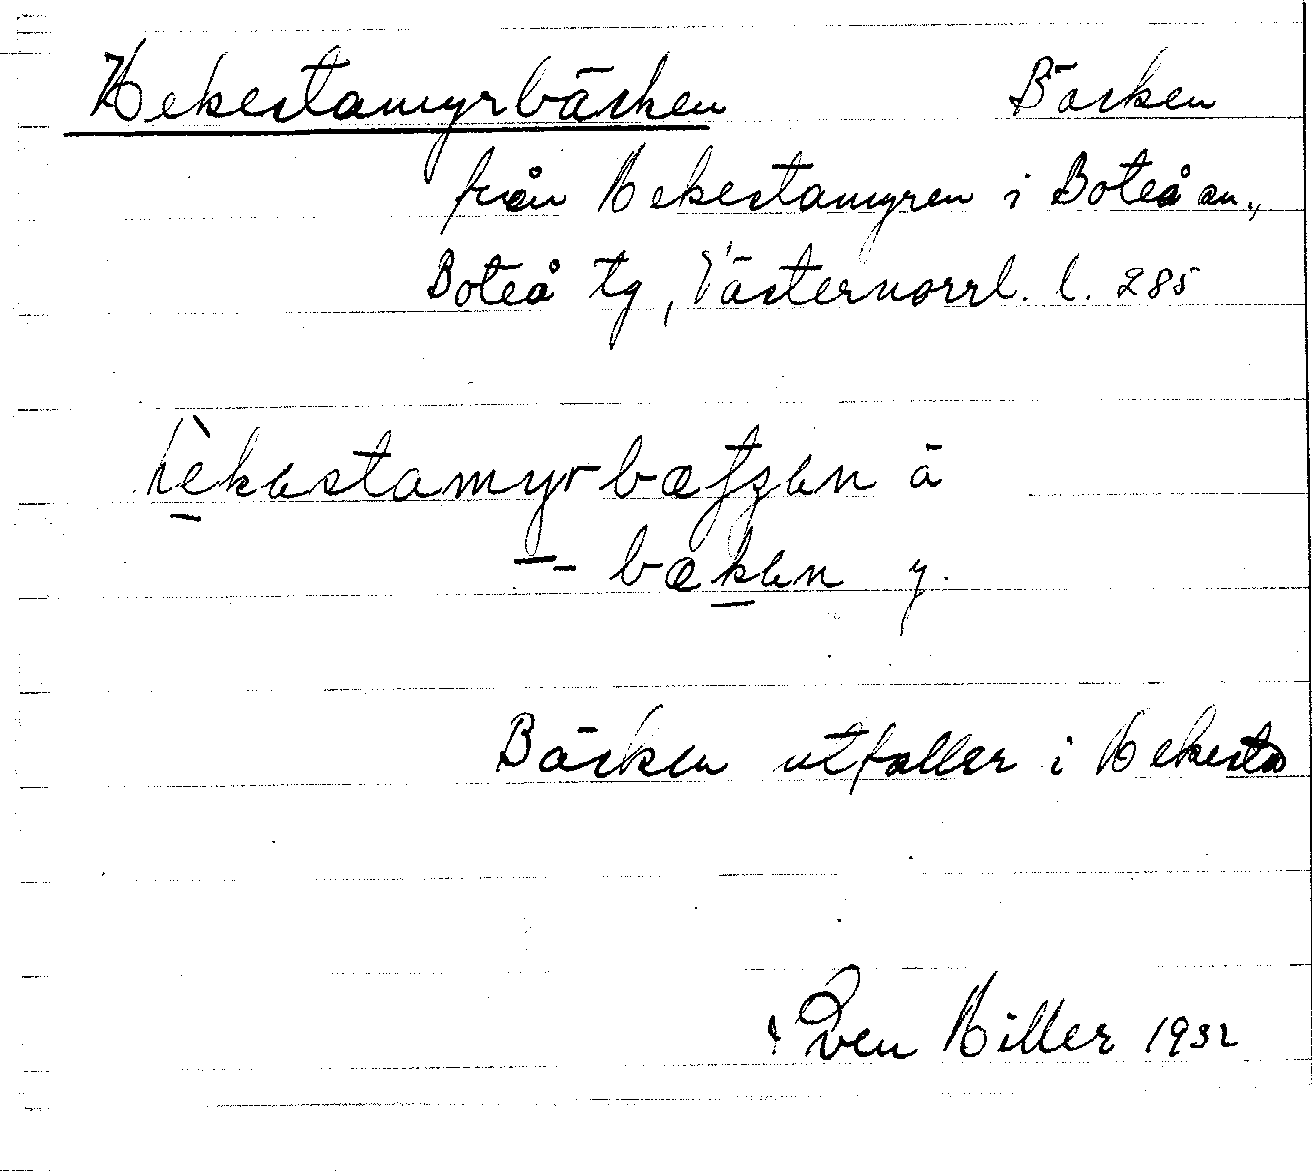 Hekestamyrbäcken Bäcken
från Hekestamyren i Boteå sn.,
Boteå tg, Västernorrl. l. 285
hèkestamyrbætʃen ä
-- - bæken y.
Bäcken utfaller i Hekesta
Sven Hiller 1932